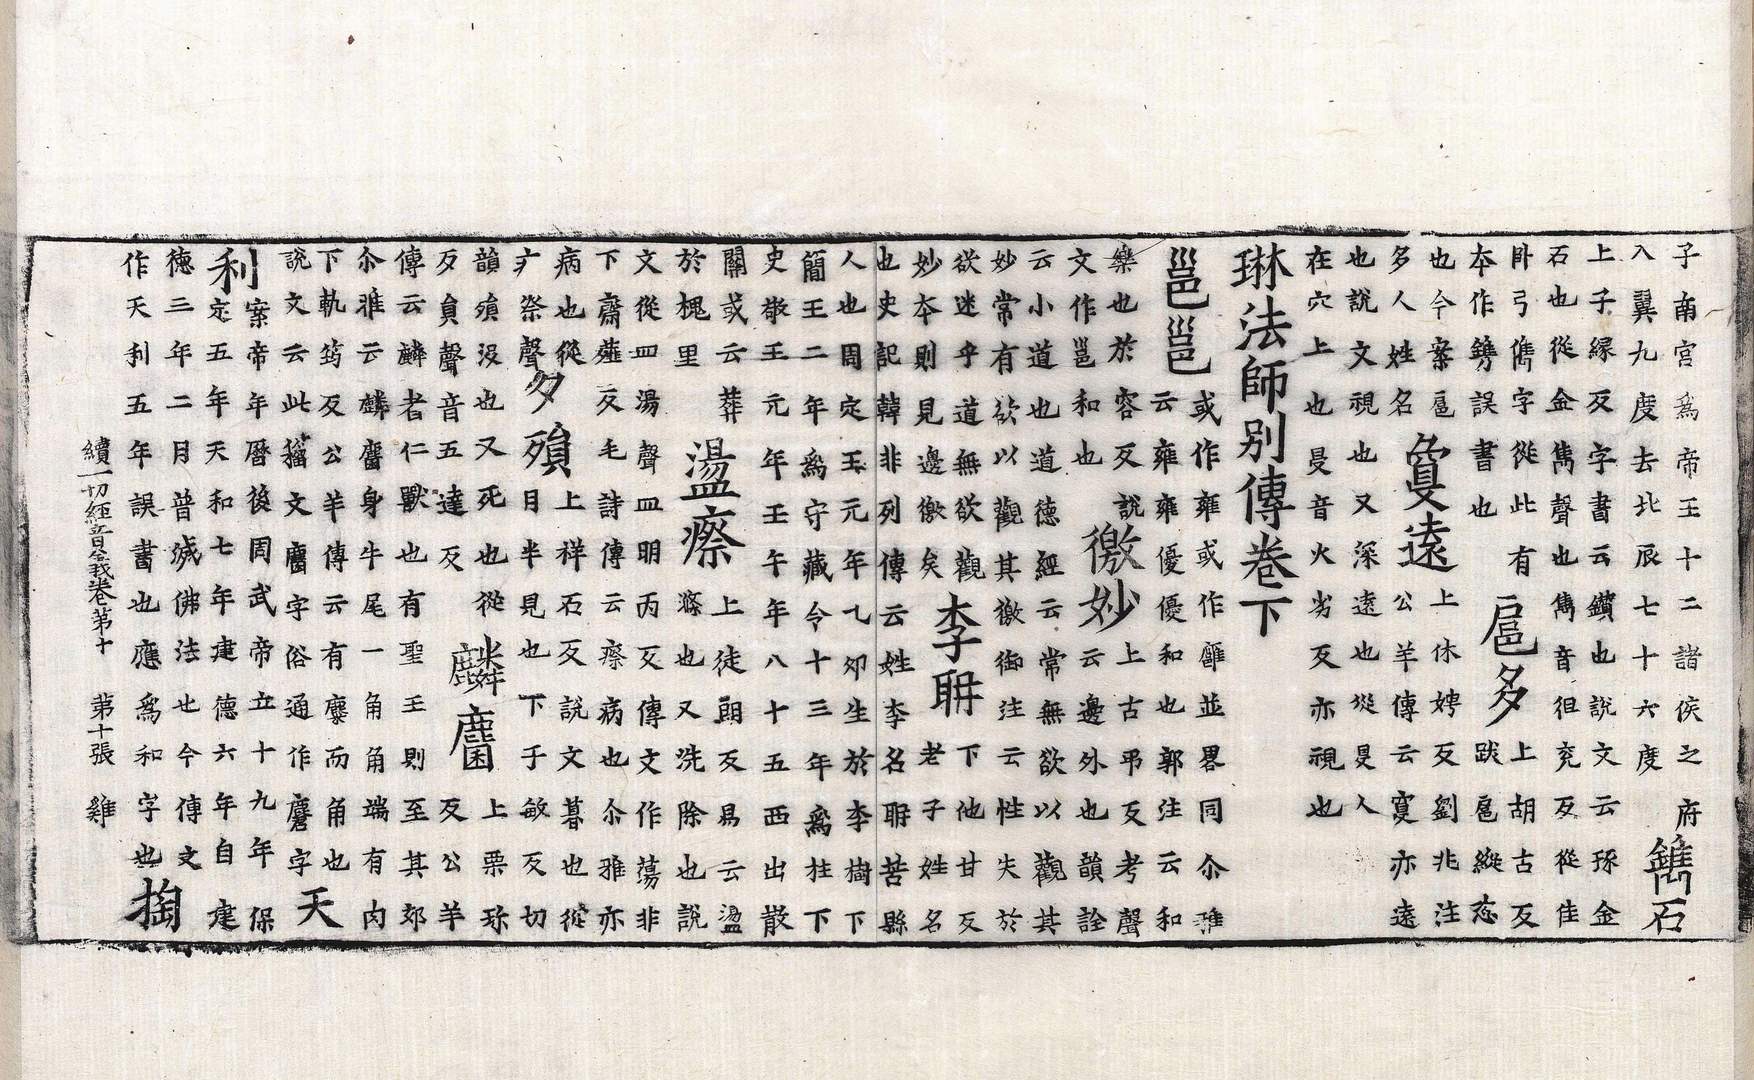 子南宮爲帝王十二諸侯之府
入翼九度去北辰七十六度
鐫石
上子緣反字書云鑽也說文云琢金
石也從金雋聲也雋音徂兖反從隹
臥弓儁字從此有
本作鎸誤書也
扈多
上胡古反
跋扈縱恣
也今案扈
多人姓名
敻遠
上休娉反劉兆注
公羊傳云敻亦遠
也說文視也又深遠也從𥄎人
在穴上也𥄎音火劣反亦視也
琳法師別傳卷下
邕邕
或作雍雍或作廱並畧同尒雅
云雍雍優優和也郭注云和
樂也於容反說
文作邕和也
徼妙
上古弔反考聲
云邊外也韻詮
云小道也道德經云常無欲以觀其
妙常有欲以觀其徼御注云性失於
欲迷乎道無欲觀
妙本則見邊徼矣
李聃
下他甘反
老子姓名
也史記韓非列傳云姓李名聃苦縣
人也周定王元年乙夘生於李樹下
簡王二年爲守藏令十三年爲柱下
史敬王元年壬午年八十五西出散
關或云葬
於槐里
盪瘵
上徒朗反易云盪
滌也又洗除也說
文從皿湯聲皿明丙反傳文作蕩非
下齋薤反毛詩傳云瘵病也尒雅亦
病也從
疒祭聲
夕殞
上祥石反說文暮也從
月半見也下于敏反切
韻殞沒也又死也從
歹員聲音五達反
麟麕
上栗珎
反公羊
傳云麟者仁獸也有聖王則至其郊
尒雅云麟麕身牛尾一角角端有肉
下軌筠反公羊傳云有麕而角也
說文云此籀文麕字俗通作麏字
天
利
案帝年曆後周武帝立十九年保
定五年天和七年建德六年自建
德三年二月普滅佛法也今傳文
作天利五年誤書也應爲和字也
掏
續一切經音義卷第十 第十張 雞